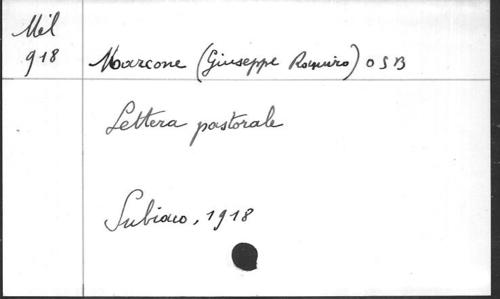 Mil
918
Marcone (Giuseppe Ramiro) OSB
Lettera pastorale
Subiaco, 1918